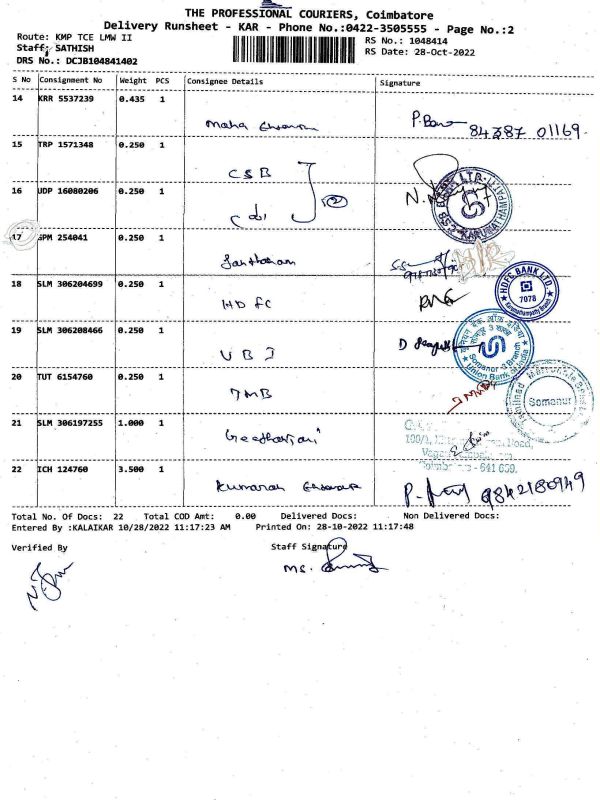 THE PROFESSIONAL COURIERS, Coimbatore
Delivery Runsheet - KAR - Phone No.:0422-3505555 - Page No.:2
Route: KMP TCE LMW II
Staff: SATHISH
DRS No.: DCJB104841402
RS No.: 1048414
RS Date: 28-Oct-2022
S No Consignment No Weight PCS Consignee Details Signature
14 KRR 5537239 0.435 1
Maha P.
84387 01169
15 TRP 1571348 0.250 1
CSB
16 UDP 16080206 0.250 1
Cdi 2
17 GPM 254041 0.250 1
Santhanam
18 SLM 306204699 0.250 1
HDFC
HDFC BANK LTD.
7078
19 SLM 306208466 0.250 1
UBI D
Somanur Branch
Union Bank of India
20 TUT 6154760 0.250 1
TMB
Somanur
21 SLM 306197255 1.000 1
Geethanjani
Road,
Coimbatore - 641 659.
22 ICH 124760 3.500 1
Kumaran P. 9842180949
Total No. Of Docs: 22 Total COD Amt: 0.00 Delivered Docs: Non Delivered Docs:
Entered By :KALAIKAR 10/28/2022 11:17:23 AM Printed On: 28-10-2022 11:17:48
Verified By Staff Signature
Ms.